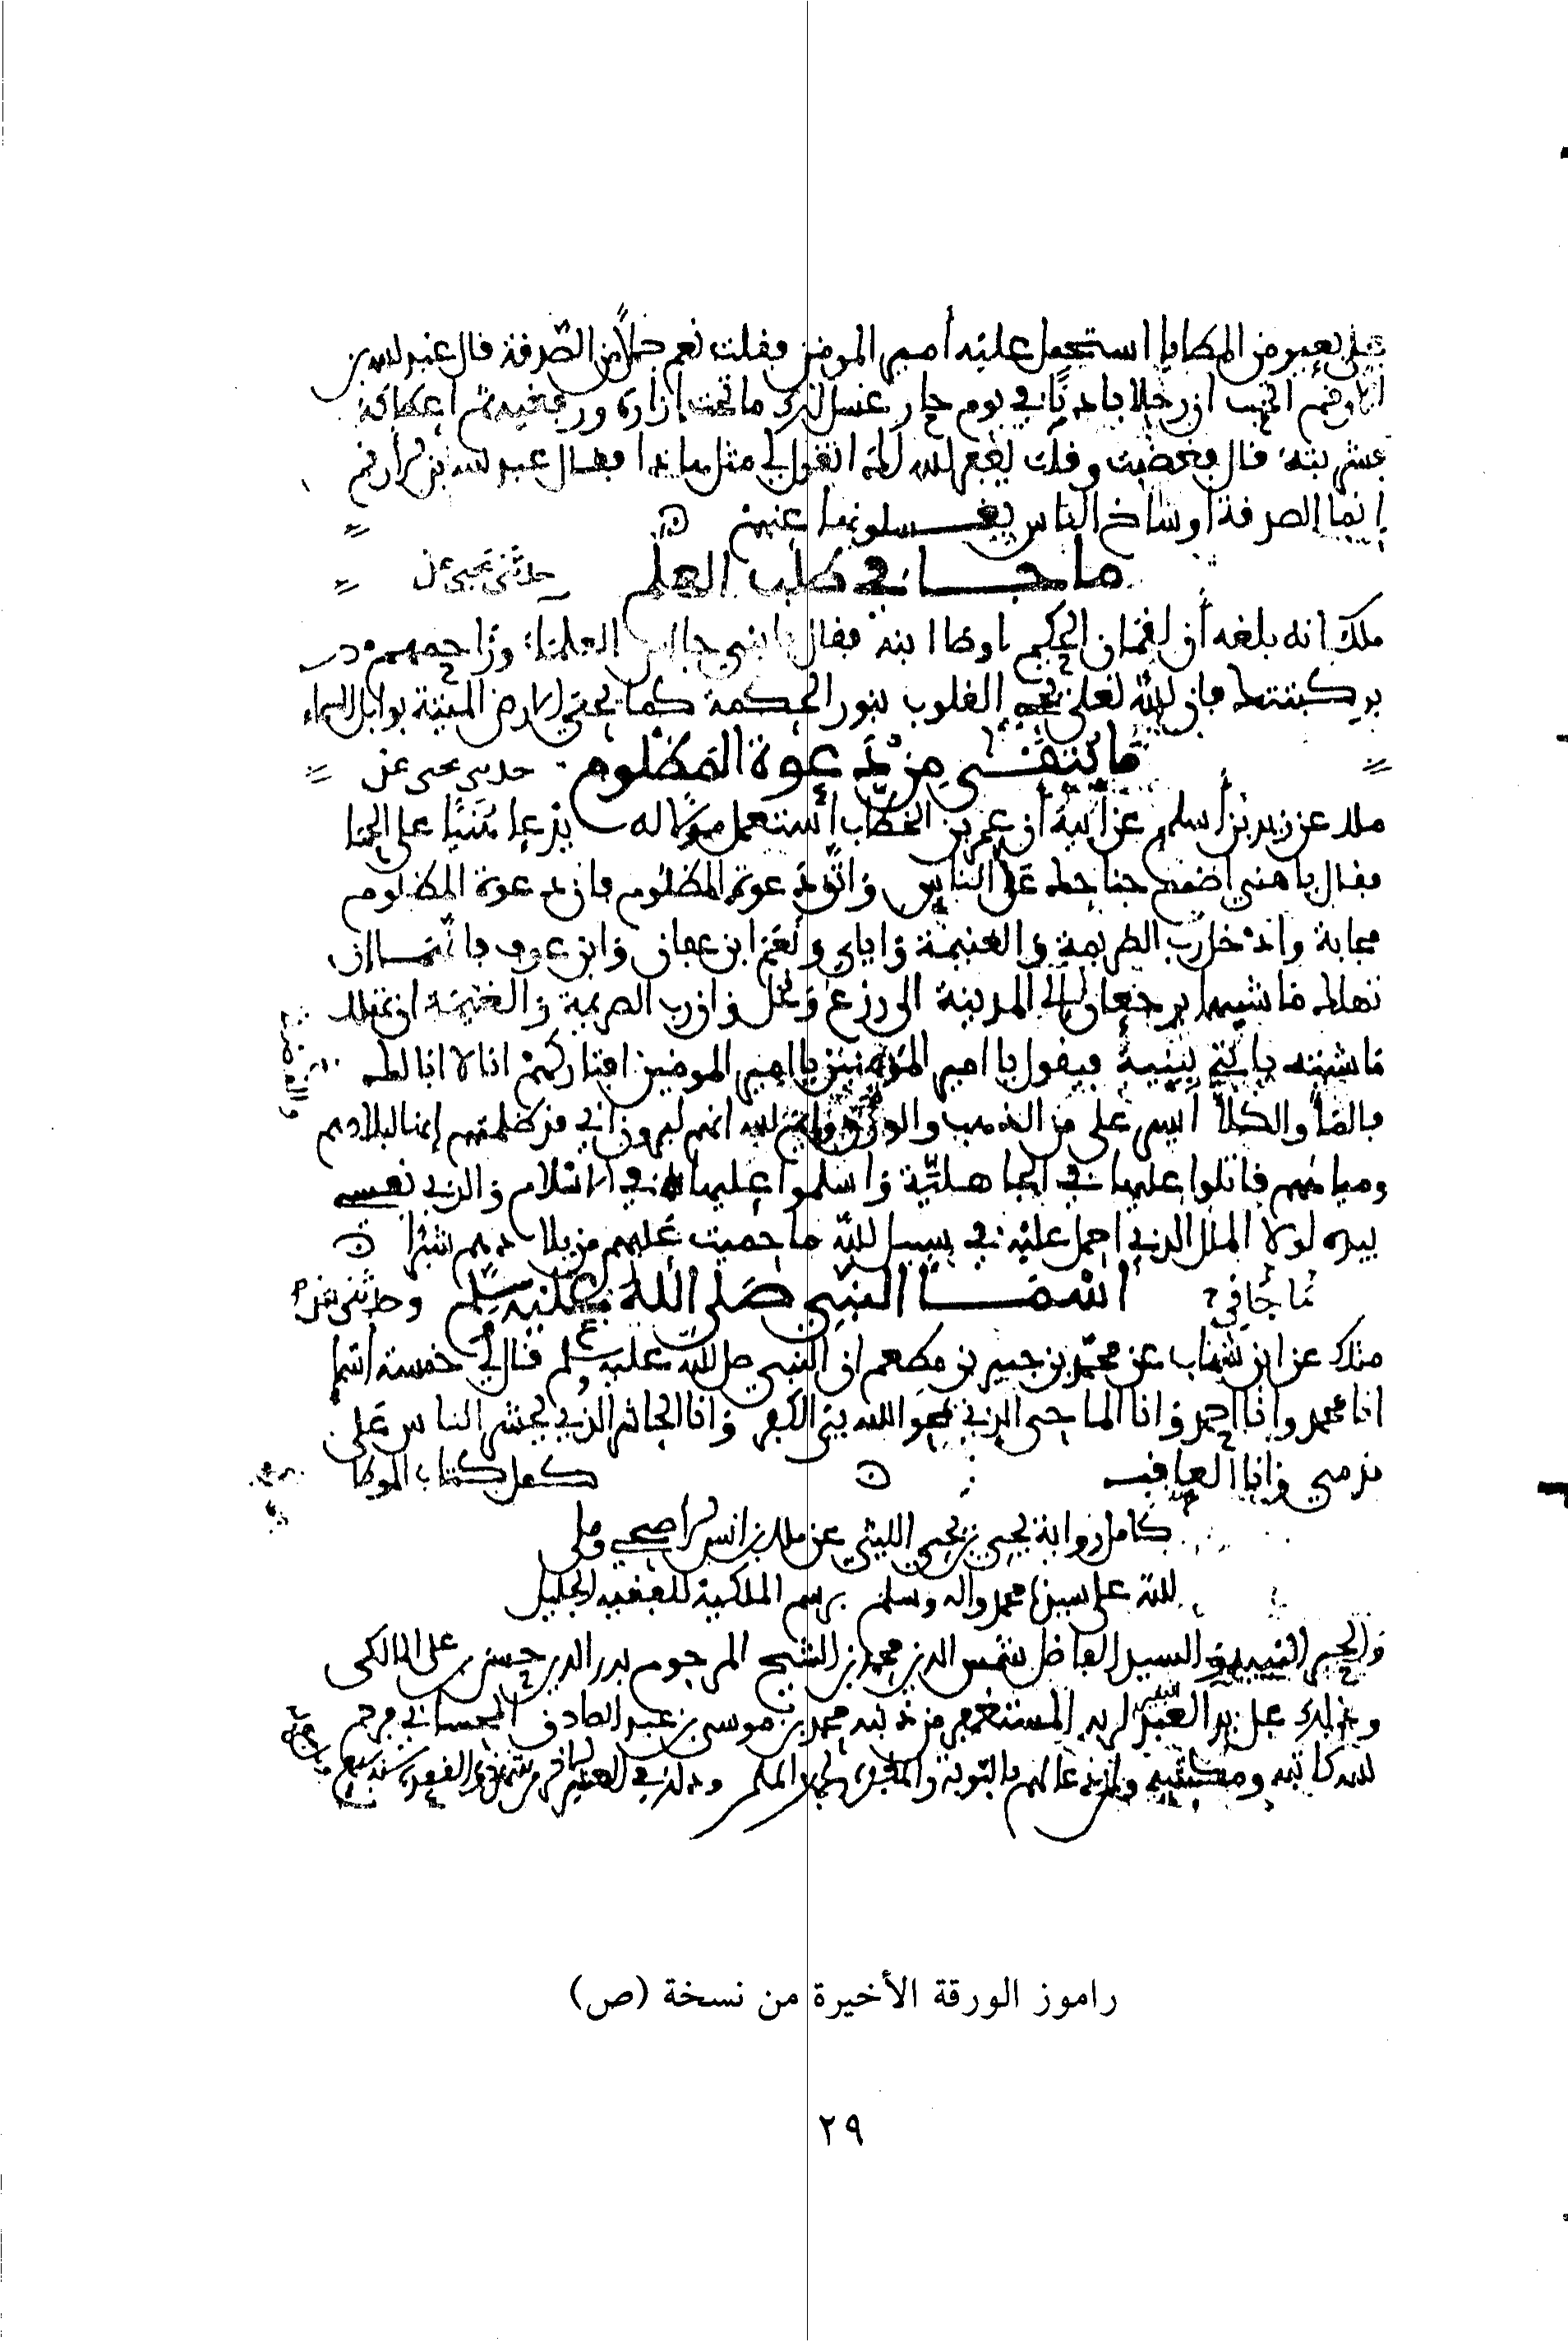 على بعير من المطايا استحمل عليه أمير المومنين فقلت نعم جملا من الصدقة فال عبد الله بن
الارقم اتحب ان رجلا بادنا في يوم حار غسل لك ما تحت ازاره ورفغيه ثم اعطاكه
فشربته فال فغضبت وقلت يغفر الله لك اتقول لي مثل هاذا فقال عبد الله بن الارقم
إنما الصدقة اوساخ الناس يغسلونها عنهم
ما جا في طلب العلم حدثني يحيى عن
ملك انه بلغه أن لقمان الحكيم اوصا ابنه فقال يا بني جالس العلماء وزاحمهم
بركبتيك فان الله تعلى يحيي القلوب بنور الحكمة كما يحيي الارض الميتة بوابل السماء
ما يتقى من دعوة المظلوم حدثني يحيى عن
ملك عن زيد بن أسلم عن أبيه أن عمر بن الخطاب استعمل مولا له يدعا هنيا على الحما
فقال يا هني اضمم جناحك عن الناس واتق دعوة المظلوم فان دعوة المظلوم
مجابة وادخل رب الصريمة والغنيمة وإياي ونعم ابن عفان وابن عوف فانهما إن
تهلك ماشيتهما يرجعان إلى المدينة الى زرع ونخل وإن رب الصريمة والغنيمة ان تهلك
ماشيته ياتني ببنيه فيقول يا امير المؤمنين يا امير المومنين افتاركهم انا لا ابا لك
فالما والكلأ أيسر علي من الذهب والورق وايم الله انهم ليرون اني قد ظلمتهم إنها لبلادهم
ومياههم قاتلوا عليها في الجاهلية واسلموا عليها في الاسلام والذي نفسي
بيده لولا المال الذي احمل عليه في سبيل الله ما حميت عليهم من بلادهم شبرا
ما جا في أسما النبي صلى الله عليه وسلم وحدثني عن
ملك عن ابن شهاب عن محمد بن جبير بن مطعم ان النبي صلى الله عليه وسلم قال لي خمسة أسما
انا محمد وانا احمد وانا الماحي الذي يمحو الله بي الكفر وانا الحاشر الذي يحشر الناس على
قدمي وانا العاقب كمل كتاب الموطا
كامل رواية يحيى بن يحيى الليثي عن ملك بن انس الاصبحي وصلى
الله على سيدنا محمد واله وسلم برسم الملكية للفقيه الجليل
السيد الفاضل شمس الدين محمد بن الشيخ المرحوم بدر الدين حسن بن علي المالكي
وذلك على يد العبد المستغفر من ذنبه محمد بن موسى بن عبد الصادق
لله كاتبه ومكتسبه ولمن دعا لهم بالتوبة والمغفرة
راموز الورقة الأخيرة من نسخة (ص)
٢٩